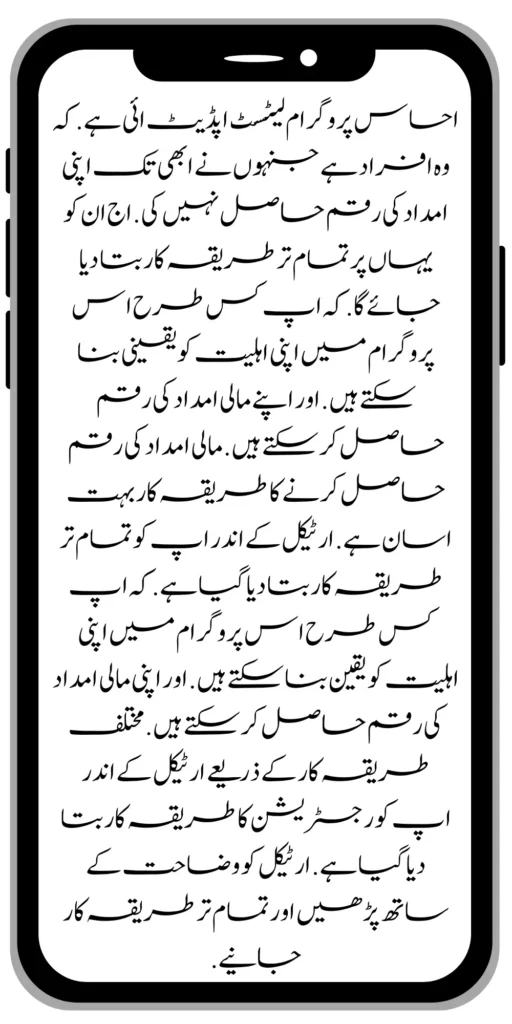 احساس پروگرام لیٹسٹ اپڈیٹ ائی ہے. کہ
وہ افراد ہے جنہوں نے ابھی تک اپنی
امداد کی رقم حاصل نہیں کی. اج ان کو
یہاں پر تمام تر طریقہ کار بتا دیا
جائے گا. کہ اپ کس طرح اس
پروگرام میں اپنی اہلیت کو یقینی بنا
سکتے ہیں. اور اپنے مالی امداد کی رقم
حاصل کر سکتے ہیں. مالی امداد کی رقم
حاصل کرنے کا طریقہ کار بہت
اسان ہے. ارٹیکل کے اندر اپ کو تمام تر
طریقہ کار بتا دیا گیا ہے. کہ اپ
کس طرح اس پروگرام میں اپنی
اہلیت کو یقین بنا سکتے ہیں. اور اپنی مالی امداد
کی رقم حاصل کر سکتے ہیں. مختلف
طریقہ کار کے ذریعے ارٹیکل کے اندر
اپ کو رجسٹریشن کا طریقہ کار بتا
دیا گیا ہے. ارٹیکل کو وضاحت کے
ساتھ پڑھیں اور تمام تر طریقہ کار
جانیے.